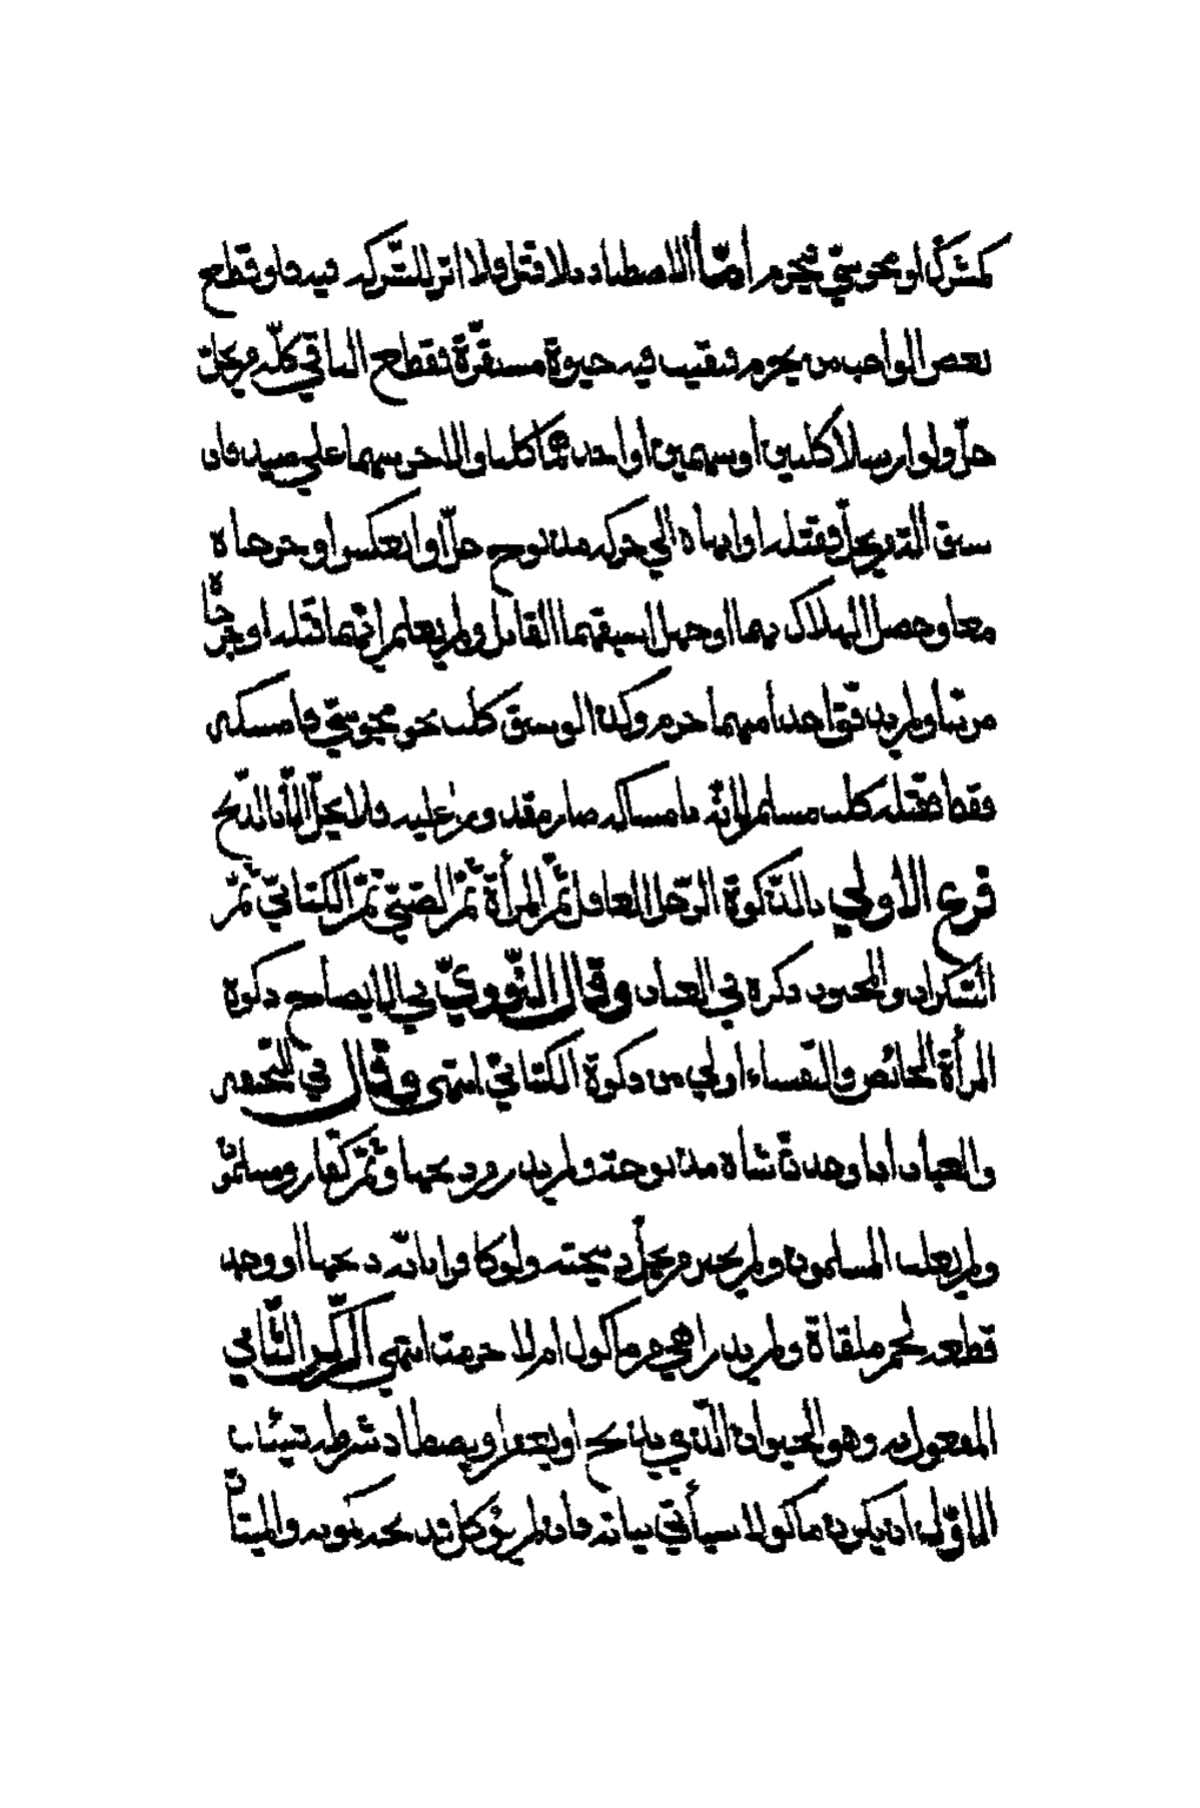 كمشرك او مجوسيّ فيحرم امّا الاصطياد بلا قتل فلا اثر للشّركه فيه فلو قطع
بعض الواجب من يحرم فبقيت فيه حيوة مستقرّة فقطع الباقي كلّه من يحلّ
حلّ ولو ارسلا كلبين او سهمين او احدهما كلبا والاخر سهما علي صيد فان
سبق الة من يحلّ فقتله او انهاه الي حركه مذبوح حلّ او انعكس او جرحاه
معا وحصل الهلاك بهما او جهل اسبقهما القاتل ولم يعلم ايّهما قتله او جرحاه
مرتبا ولم يذفّف احد منهما حرم وكذا لو سبق كلب نحو مجوسيّ فامسكه
فقط فقتله كلب مسلم لانّه بامساكه صار مقدورا عليه فلا يحلّ الّا بالذّبح
فرع الاولي بالذّكوة الرّجل العاقل ثمّ المرأة ثمّ الصّبيّ ثمّ الكتابيّ ثمّ
السّكران والمجنون ذكره في العباب وقال النّوويّ في الايضاح ذكوة
المرأة الحائض والنّفساء اولي من ذكوة الكتابيّ انتهى وقال في التّحفه
والعباب اذا وجدت شاة مذبوحة ولم يدر من ذبحها وثمّ كفّار ومسلمون
ولم يغلب المسلمون ولم يخبر من يحلّ ذبيحته ولو كافرا بانّه ذبحها او وجد
قطعه لحم ملقاة ولم يدر اهي من مأكول ام لا حرمت انتهي الرّكن الثّاني
المفعول به وهو الحيوان الّذي يذبح او يعقر او يصطاد شرطه شيئان
الاوّل ان يكون مأكولا سيأتي بيانه فان لم يؤكل فذبحه كموته والميتة